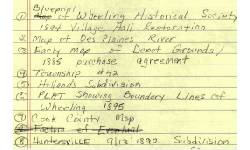 Blueprint
① Map of Wheeling Historical Society
1894 Village Hall Restoration
② Map of Des Plaines River
③ Early Map of Depot Grounds/
1885 purchase agreement
④ Township #42
⑤ Hillands Subdivision
⑥ PLAT Showing Boundary Lines of
Wheeling 1895
⑦ Cook County Map
⑧ Huntersville 9/13 1892 Subdivision